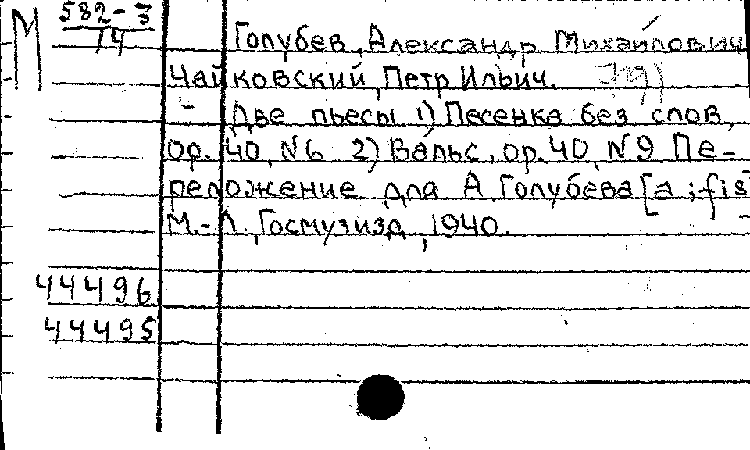 М 582-3
14
Голубев, Александр Михайлович
Чайковский, Петр Ильич.
- Две пьесы 1) Песенка без слов,
ор. 40, №6 2) Вальс, ор. 40, №9 Пе-
реложение для А. Голубева [a; fis]
М.-Л., Госмузизд, 1940.
44496
44495